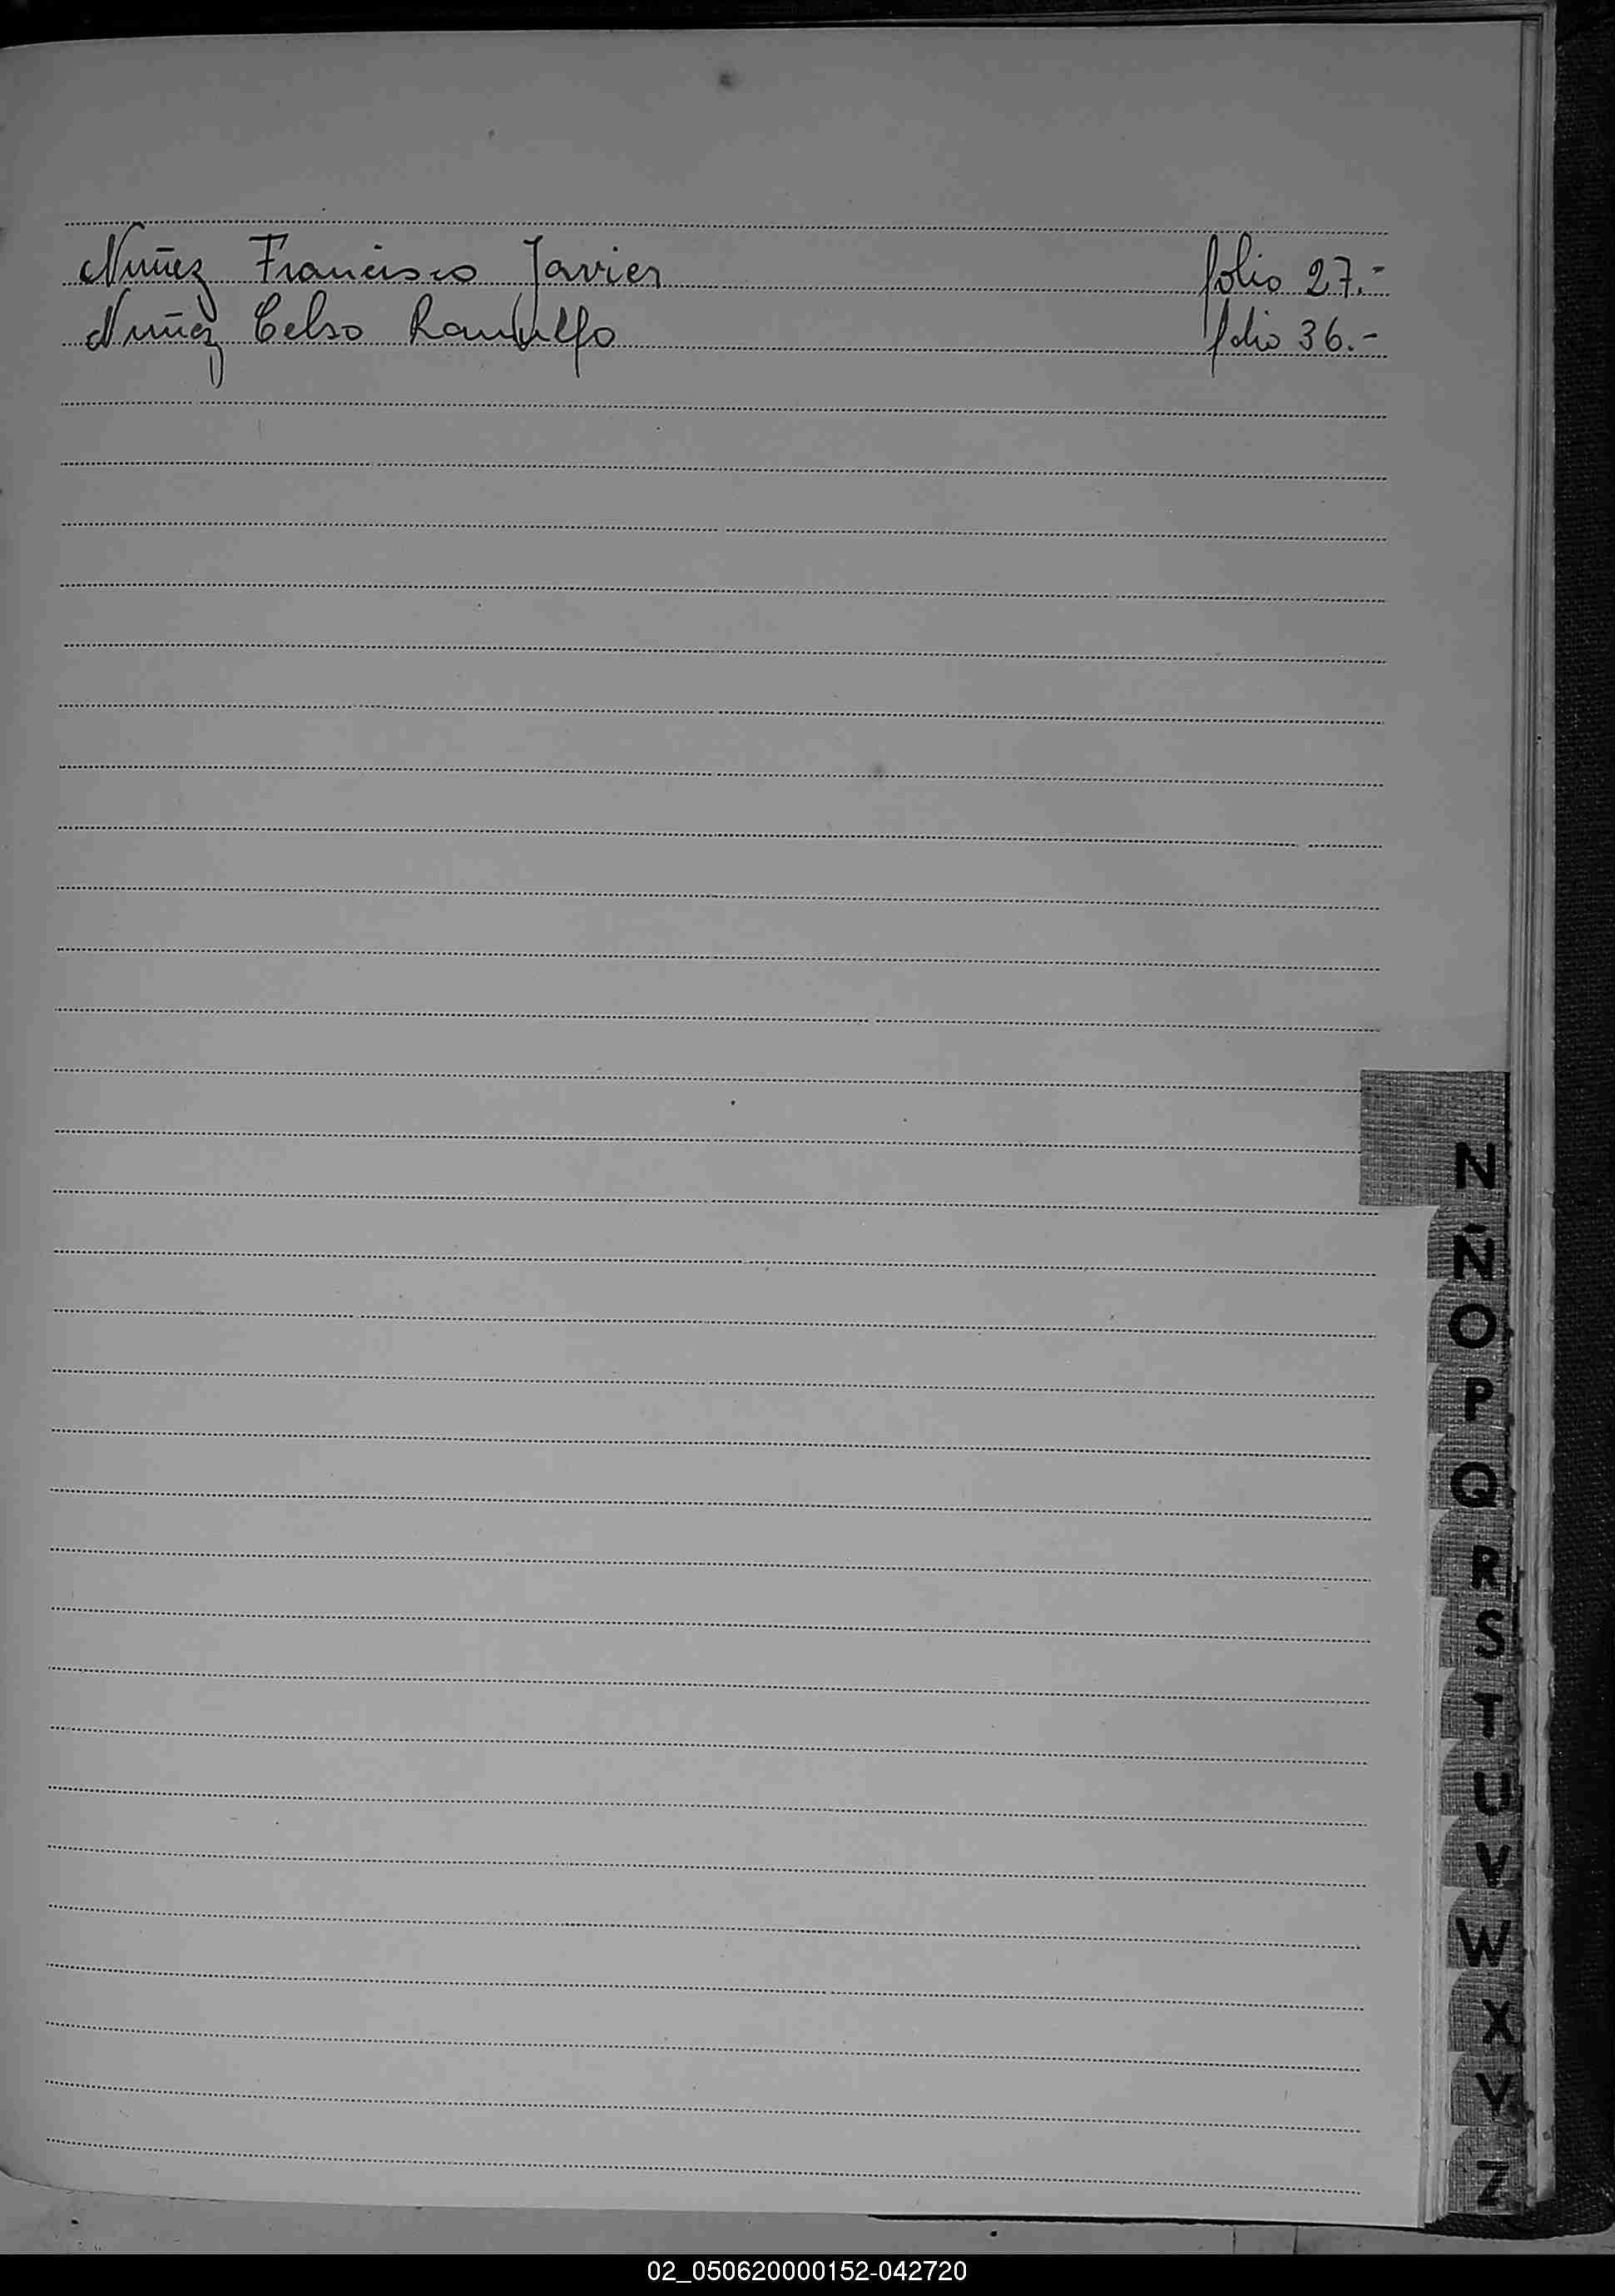 Nuñez Francisco Javier folio 27.-
Nuñez Celso Randulfo folio 36.-
N
Ñ
O
P
Q
R
S
T
U
V
W
X
Y
Z
02_050620000152-042720